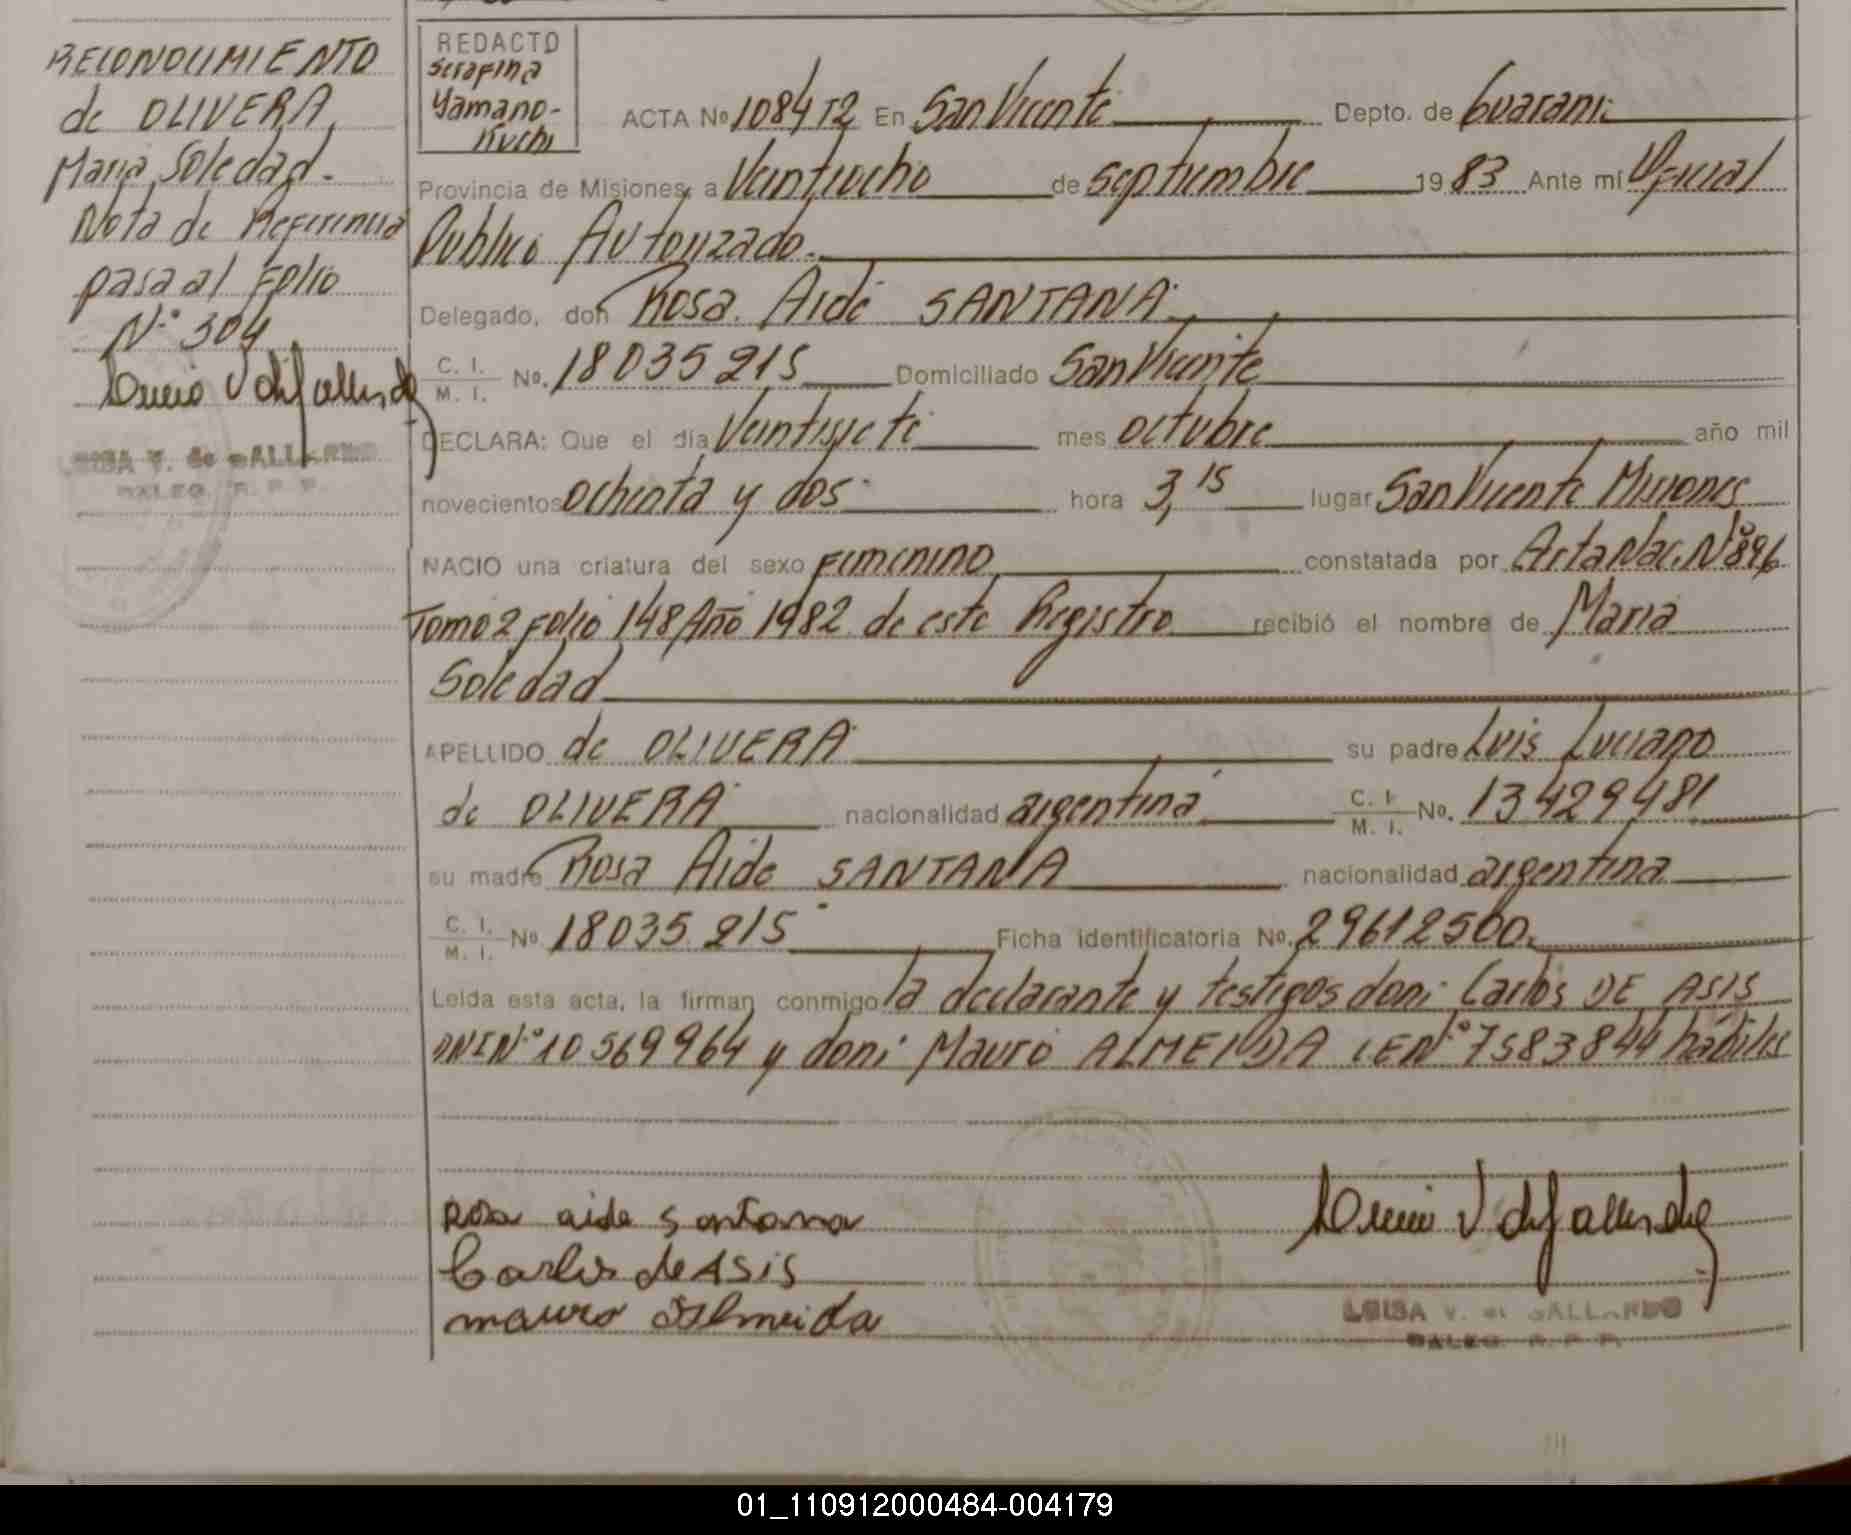 RECONOCIMIENTO
de OLIVERA,
Maria Soledad.
Nota de Referencia
pasa al Folio
N.º 304
LUISA V. de GALLARDO
REDACTO
Serafina
Yamano-
Kuchi
ACTA No 1084 T2 En San Vicente Depto. de Guarani
Provincia de Misiones, a Veintiocho de septiembre 1983 Ante mí Oficial
Publico Autorizado.
Delegado, don Rosa Aide SANTANA
C. I. M. I. No. 18035215 Domiciliado San Vicente
DECLARA: Que el día Veintisiete mes octubre año mil
novecientos ochenta y dos hora 3,15 lugar San Vicente Misiones
NACIO una criatura del sexo FEMENINO constatada por Acta Nac. Nº 896
Tomo 2 Folio 148 Año 1982 de este Registro recibió el nombre de Maria
Soledad
APELLIDO de OLIVERA su padre Luis Luciano
de OLIVERA nacionalidad argentina C. I. M. I. No. 13429481
su madre Rosa Aide SANTANA nacionalidad argentina
C. I. M. I. No 18035215 Ficha identificatoria No. 29612500.
Leída esta acta, la firman conmigo la declarante y testigos don: Carlos DE ASIS
DNI Nº 10569964 y don: Mauro ALMEIDA LE Nº 7583844 habiles
Rosa aide santana
Carlos de Asis
mauro Almeida
LUISA V. de GALLARDO
01_110912000484-004179